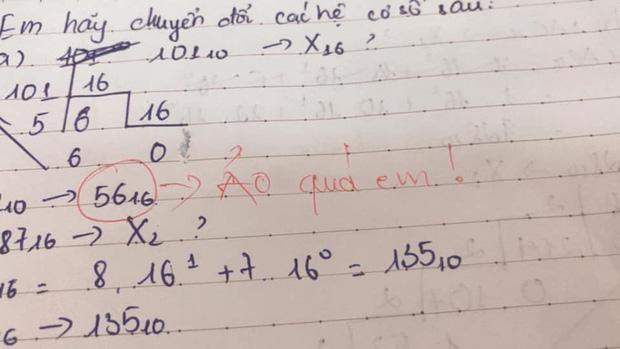 Em hãy chuyển đổi các hệ cơ số sau:
a) 101₁₀ → X₁₆ ?
101 16
5 6 16
6 0
₁₀ → 56₁₆ → Ảo quá em!
87₁₆ → X₂ ?
₁₆ = 8 . 16¹ + 7 16⁰ = 135₁₀
₆ → 135₁₀